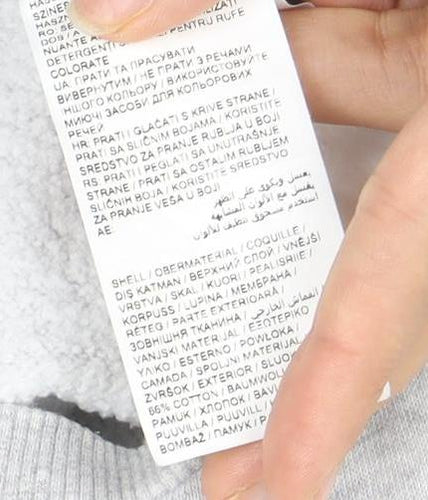 NUANTE A
DETERGENTI PENTRU RUFE
COLORATE
UA. ПРАТИ ТА ПРАСУВАТИ
ВИВЕРНУТИМ / НЕ ПРАТИ З РЕЧАМИ
ІНШОГО КОЛЬОРУ / ВИКОРИСТОВУЙТЕ
МИЮЧІ ЗАСОБИ ДЛЯ КОЛЬОРОВИХ
РЕЧЕЙ
HR. PRATI I GLAČATI S KRIVE STRANE /
PRATI SA SLIČNIM BOJAMA / KORISTITE
SREDSTVO ZA PRANJE RUBLJA U BOJI
RS. PRATI I PEGLATI SA UNUTRAŠNJE
STRANE / PRATI SA OSTALIM RUBLJEM
SLIČNIH BOJA / KORISTITE SREDSTVO
ZA PRANJE VEŠA U BOJI
AE.
يغسل ويكوى على الظهر
يغسل مع الألوان المشابهة
استخدم مسحوق تنظيف للألوان
SHELL / OBERMATERIAL / COQUILLE /
DIŞ KATMAN / ВЕРХНИЙ СЛОЙ / VNĚJŠÍ
VRSTVA / SKAL / KUORI / REALISRIIE /
KORPUSS / LUPINA / МЕМБРАНА /
RÉTEG / PARTE EXTERIOARĂ /
ЗОВНІШНЯ ТКАНИНА / القماش الخارجي /
VANJSKI MATERIJAL / ΕΞΩΤΕΡΙΚΟ
ΥΛΙΚΟ / ESTERNO / POWŁOKA /
CAMADA / SPOLJNI MATERIJAL
ZVRŠOK / EXTERIOR / SLUO
66% COTTON / BAUMWOLL
PAMUK / ХЛОПОК / BAVL
PUUVILLA / PUUVILL /
BOMBAŽ / ПАМУК / P